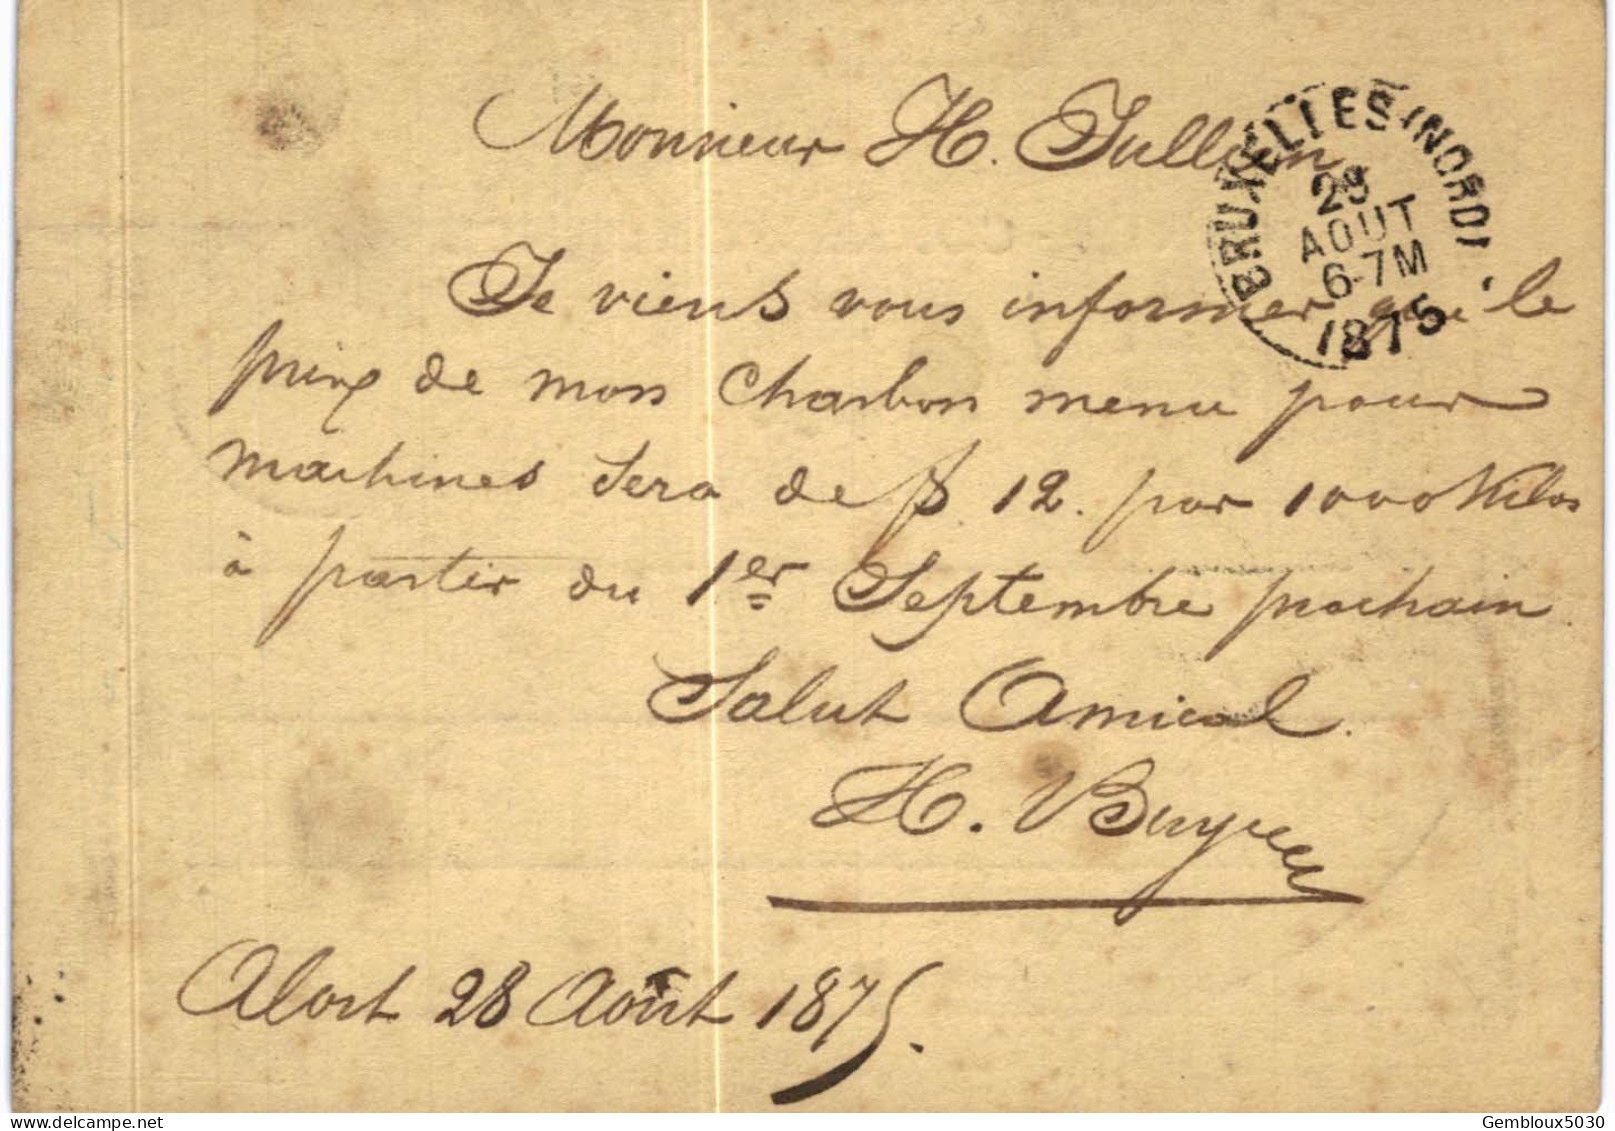 Monsieur H. Jullien
BRUXELLES (NORD)
29
AOUT
6-7M
1875
Je viens vous informer que le
prix de mon Charbon menu pour
machines sera de f. 12. par 1000 Kilos
à partir du 1er Septembre prochain
Salut Amical.
H.
Alost 28 Août 1875.
Gembloux5030